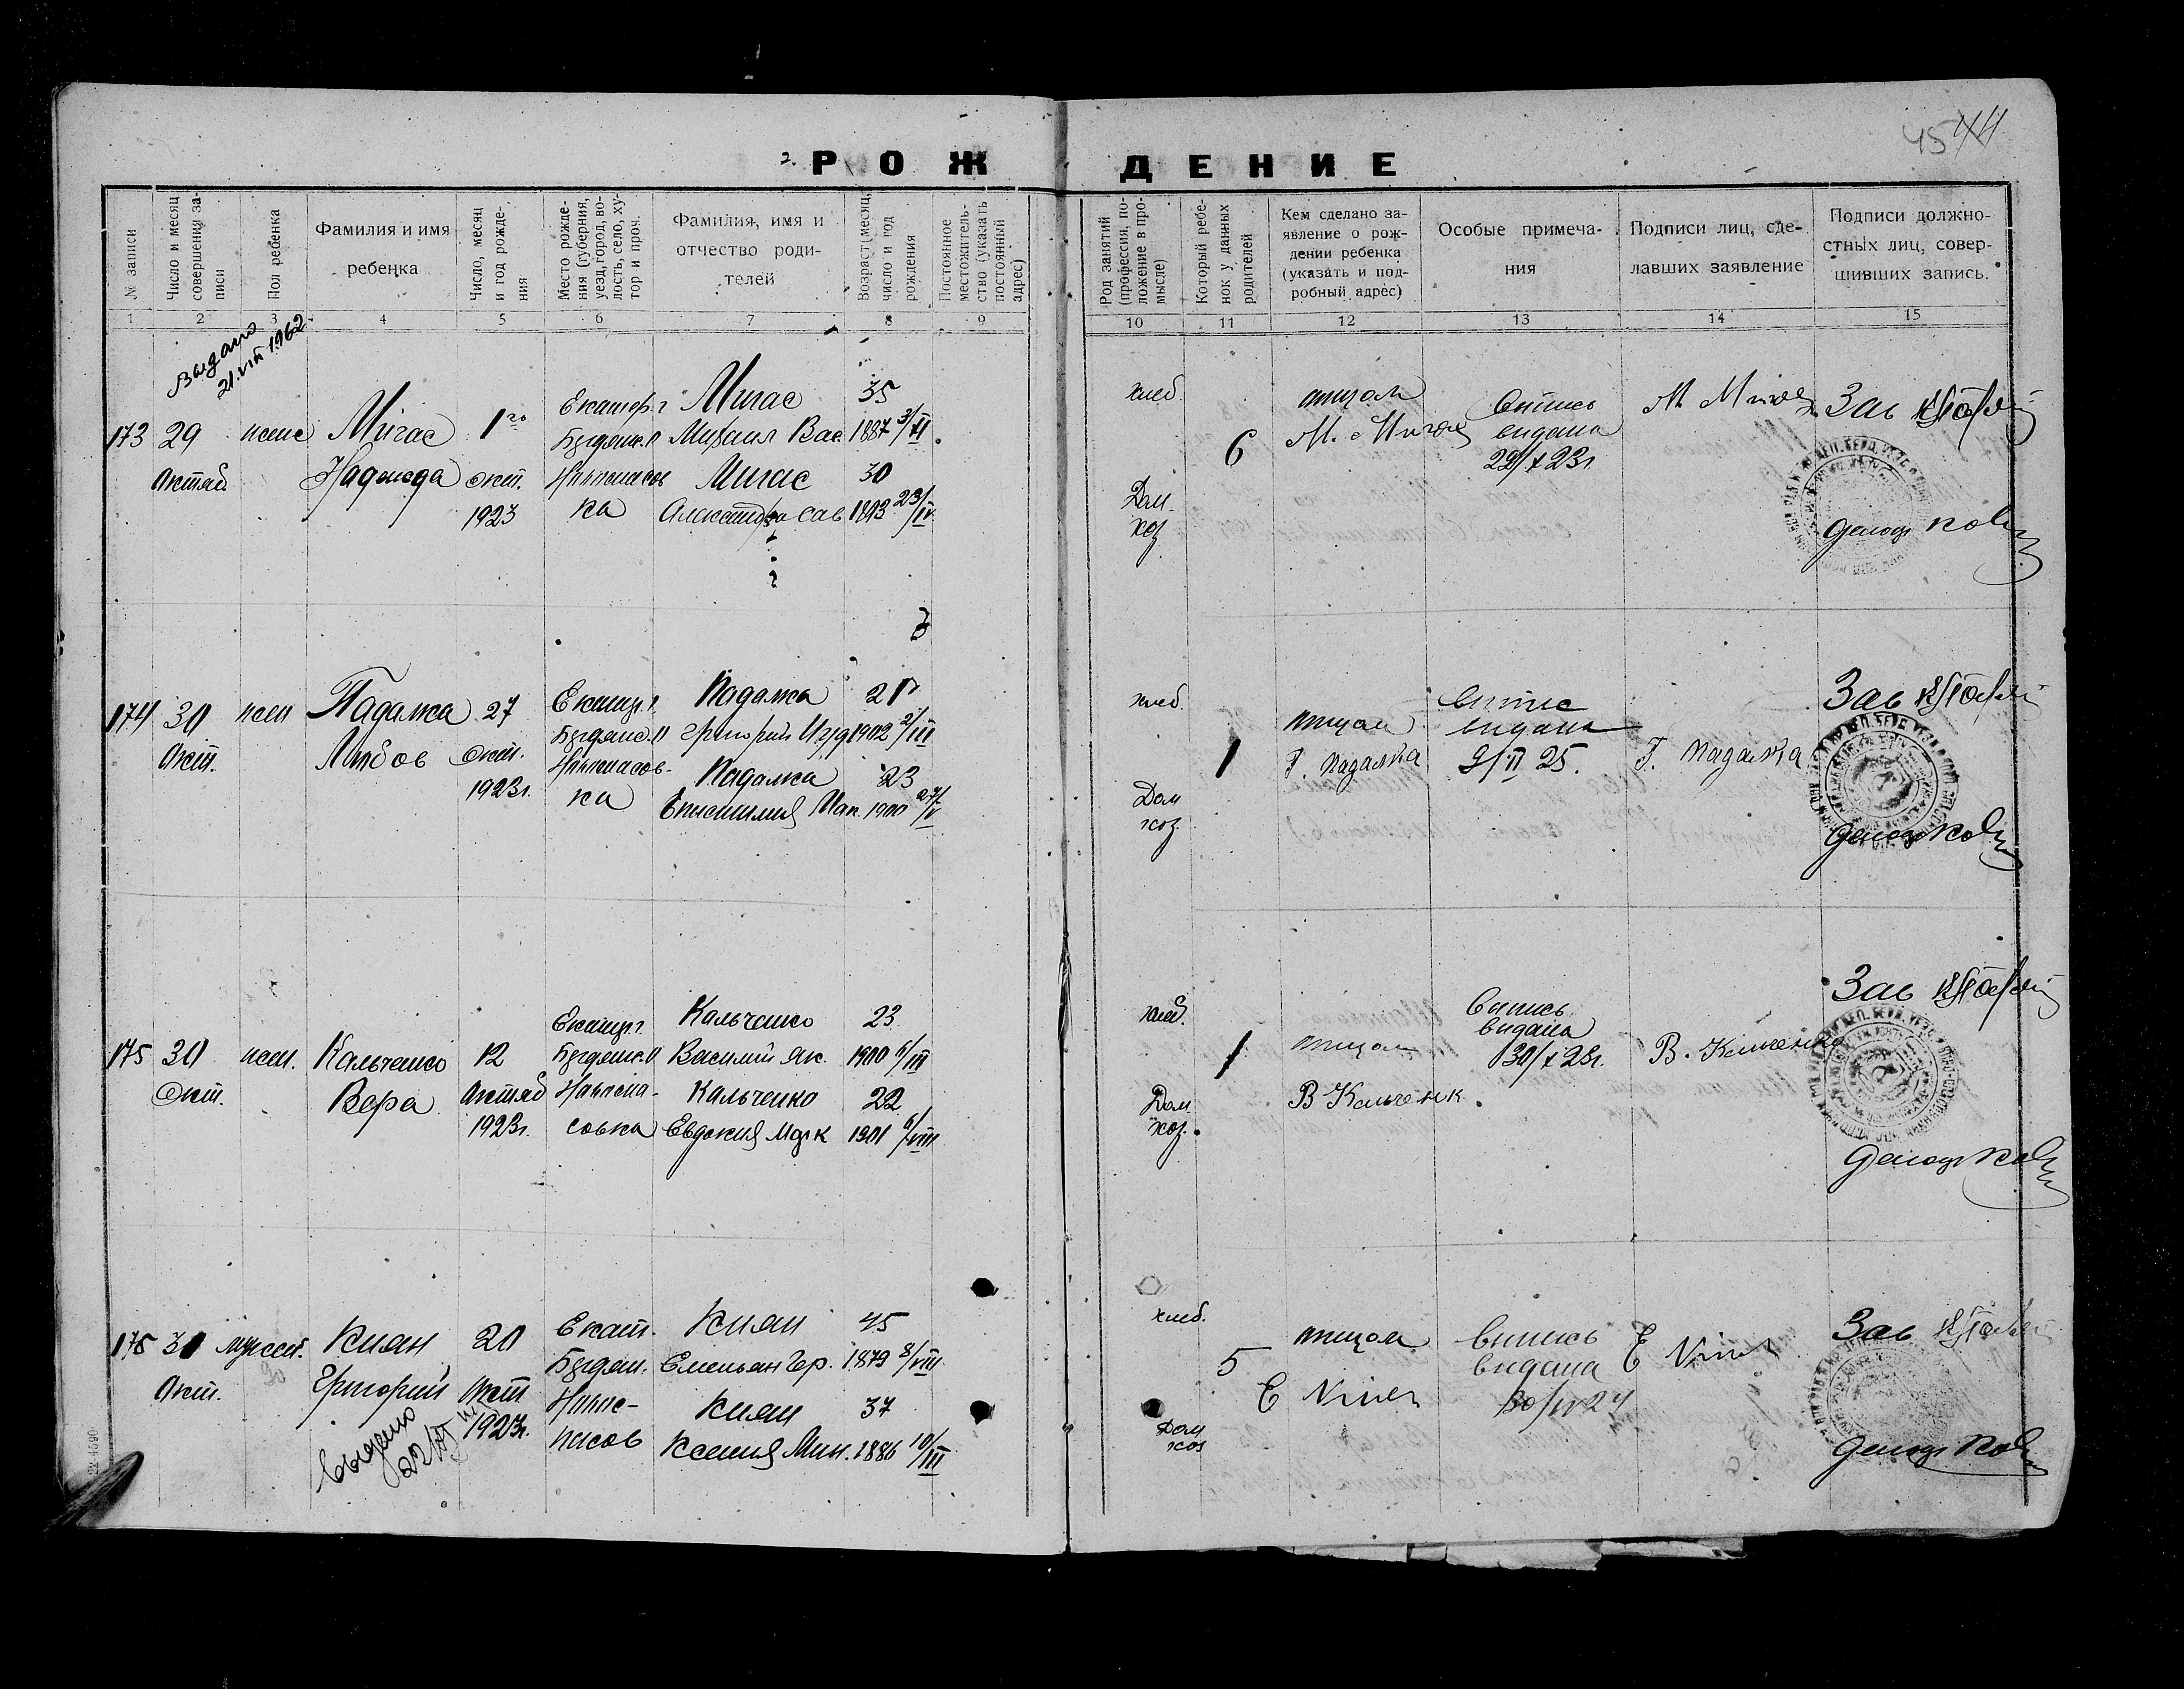 45 44
РОЖДЕНИЕ
№ записи
Число и месяц совершения за-
писи
Пол ребенка
Фамилия и имя
ребенка
Число, месяц
и год рожде-
ния
Место рожде-
ния (губерния,
уезд, город, во-
лость, село, ху-
тор и проч.
Фамилия, имя и
отчество роди-
телей
Возраст (месяц,
число и год
рождения
Постоянное
местожитель-
ство (указать
постоянный
адрес)
Род занятий
(профессия, по-
ложение в про-
мысле)
Который ребе-
нок у данных
родителей
Кем сделано за-
явление о рож-
дении ребенка
(указать и под-
робный адрес)
Особые примеча-
ния
Подписи лиц, сде-
лавших заявление
Подписи должно-
стных лиц, совер-
шивших запись.
1 2 3 4 5 6 7 8 9 10 11 12 13 14 15
Выдано
21.VIII 1962
173
29
Октяб.
женс
Мигас
Надежда
1го
окт.
1923
Екатер. г
Бердянс. у
ка
Мигас
Михаил Вас
Мигас
Александра Сав
35
1887 3/XI
30
1893 23/IV
хлеб.
Дом.
хоз
6
отцом
М. Мигас
Випись
видана
29/X 23г.
М Мигас
Зав
Делопр
174
30
Окт.
жен
Падалка
Любов
27
Окт.
1923г.
Екатер. г.
Бердянс. у
ка
Падалка
Григорий
Падалка
21
1902 2/III
23
1900 27/V
хлеб.
Дом
хоз.
1
отцом
Г. Падалка
Випис
видана
9/II 25.
Г. Падалка
Зав
Делопр
175
30
Окт.
жен.
Кальченко
Вера
12
Октяб
1923г.
Екатер. г.
Бердянс. у
совка
Кальченко
Василий Як.
Кальченко
Евдокия
23
1900 6/III
22
1901 6/VIII
хлеб.
Дом.
хоз.
1
отцом
В Кальченк
Випись
видана
В. Кальченко
Зав
Делопр
30
Окт.
мужск.
Киян
Григорий
20
Окт
1923г.
Выдано
Екат.
Бердян.
Киян
Емельян Гер.
Киян
Ксения Мин.
45
1879 8/VIII
37
1886 10/III
хлеб.
Дом
хоз
5
отцом
Випись
видана
30/IV 24
Зав
Делопр